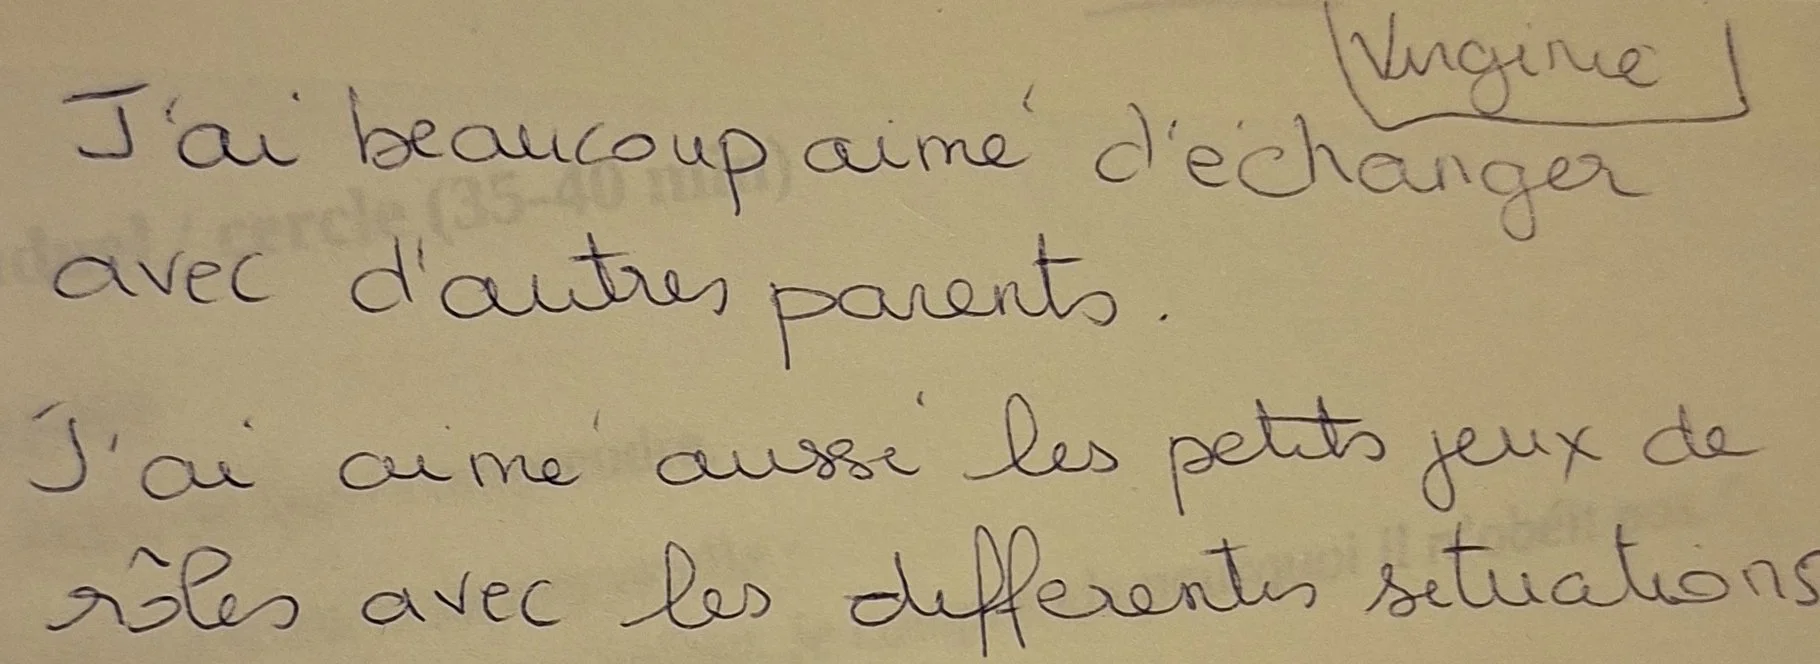 Virginie
J'ai beaucoup aimé d'échanger
avec d'autres parents.
J'ai aimé aussi les petits jeux de
rôles avec les differentes situations